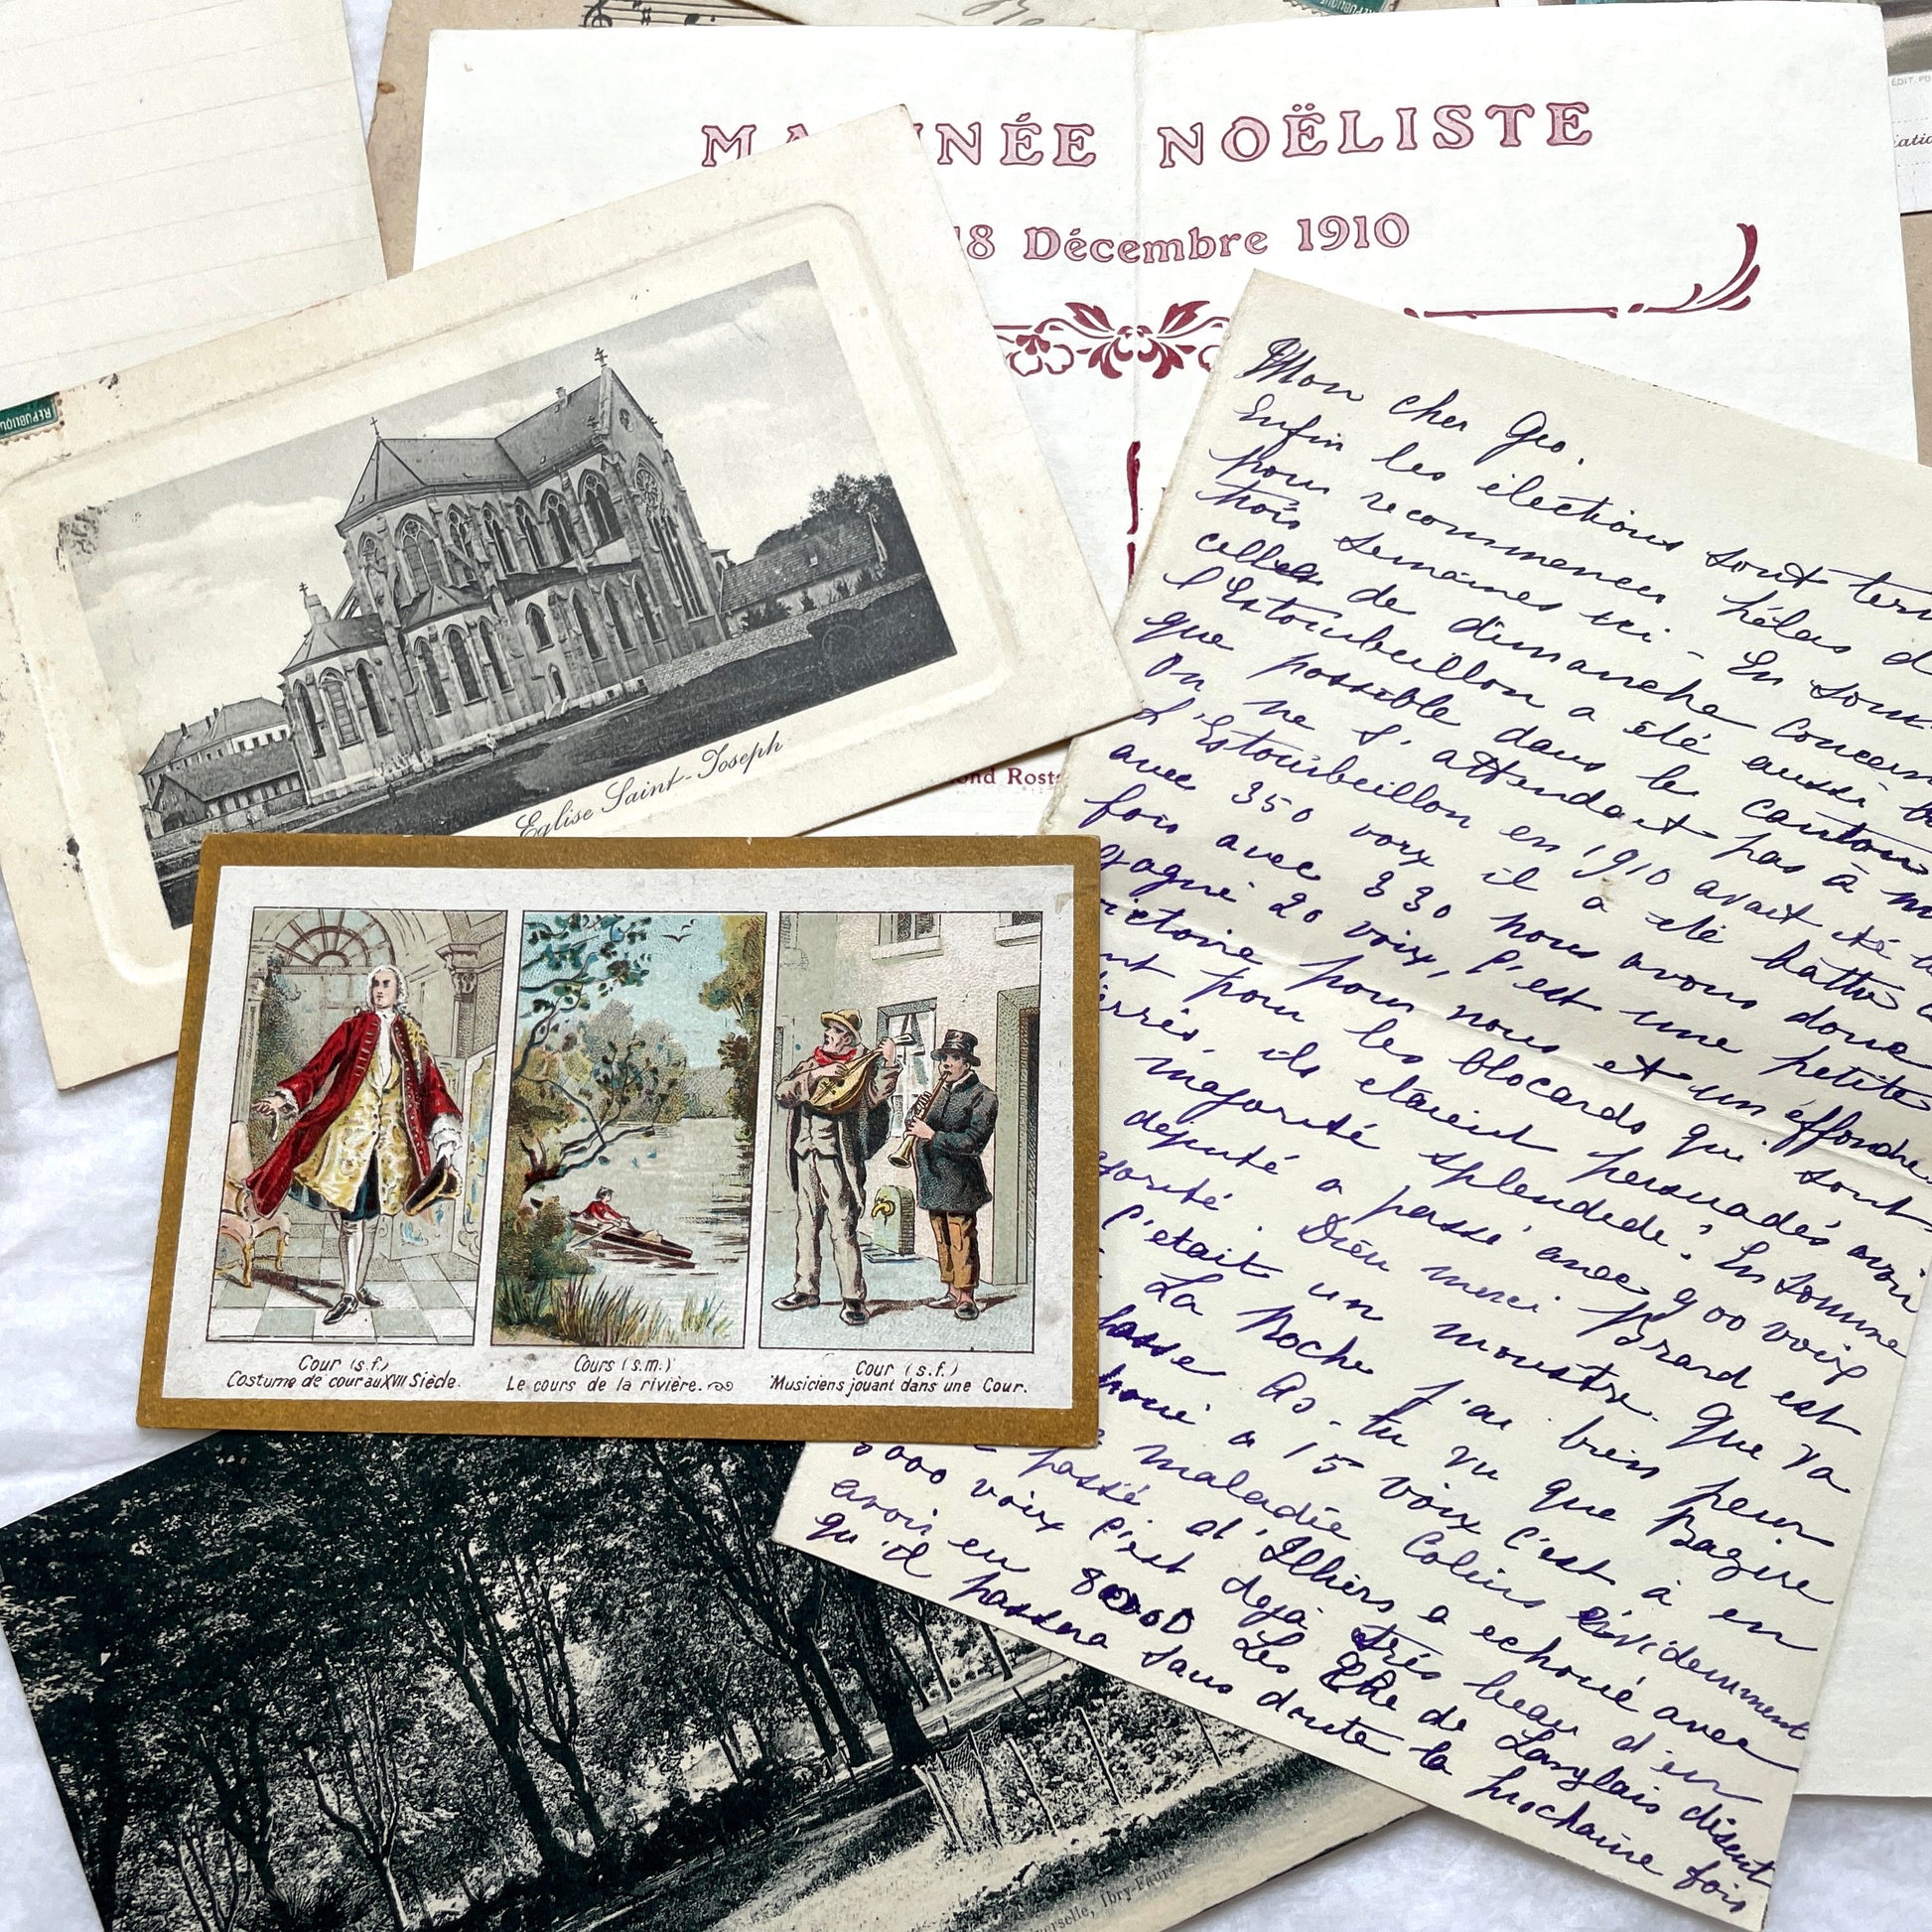 MA NNÉE NOËLISTE
18 Décembre 1910
REPUBLIQUE
Eglise Saint-Joseph
ond Rost
Cour (s.f.)
Costume de cour au XVII Siècle.
Cours (s.m.)
Le cours de la rivière.
Cour (s.f.)
Musiciens jouant dans une Cour.
Mon cher Geo.
Enfin les élections sont ter
pour recommencer hélas d
trois semaines ici - En som
celles de dimanche concern
l'Estourbeillon a été aussi b
que possible dans le canton
On ne s'attendait pas à m
L'Estourbeillon en 1910 avait été
avec 350 voix il a été battu
fois avec 330 nous avons donc
gagné 20 voix, c'est une petite
victoire pour nous et un effondre
nt pour les blocards qui sont
ils étaient persuadés avoir
majorité splendide. En somme
député a passé avec 900 voix
jorité. Dieu merci Brard est
c'était un monstre. Que va
La Roche j'ai bien peur
passe As-tu vu que Bazire
houé à 15 voix c'est à en
maladie Colin évidemment
passé d'Illiers a echoué avec
000 voix c'est deja très beau d'en
avoir eu 8000 Les de Langlais disent
qu'il passera sans doute la prochaine fois
verselle, Ibry-Faure